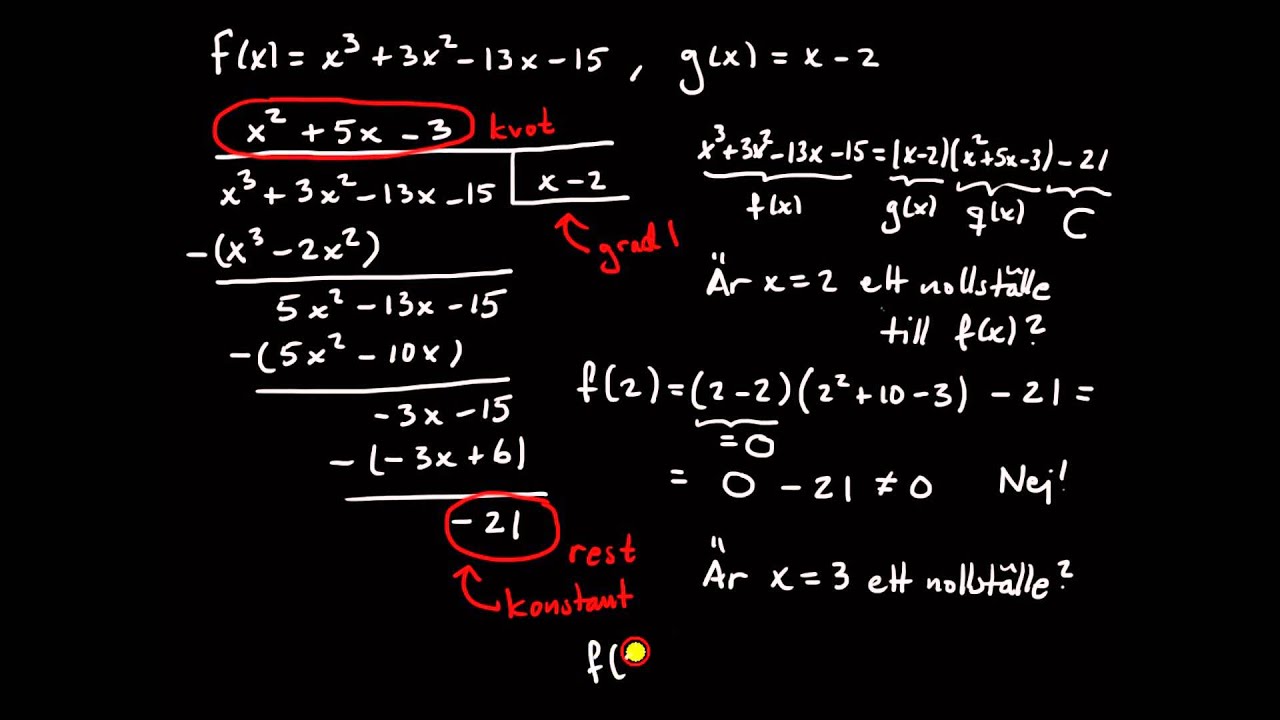 f(x) = x³ + 3x² - 13x - 15 , g(x) = x - 2
x² + 5x - 3 kvot
x³ + 3x² - 13x - 15 x - 2
grad 1
-(x³ - 2x²)
5x² - 13x - 15
-(5x² - 10x)
-3x - 15
-(-3x + 6)
-21
rest
konstant
x³+3x²-13x-15 = (x-2)(x²+5x-3) - 21
f(x) g(x) q(x) C
Är x = 2 ett nollställe
till f(x)?
f(2) = (2-2)(2²+10-3) - 21 =
= 0
= 0 - 21 ≠ 0 Nej!
Är x = 3 ett nollställe?
f(